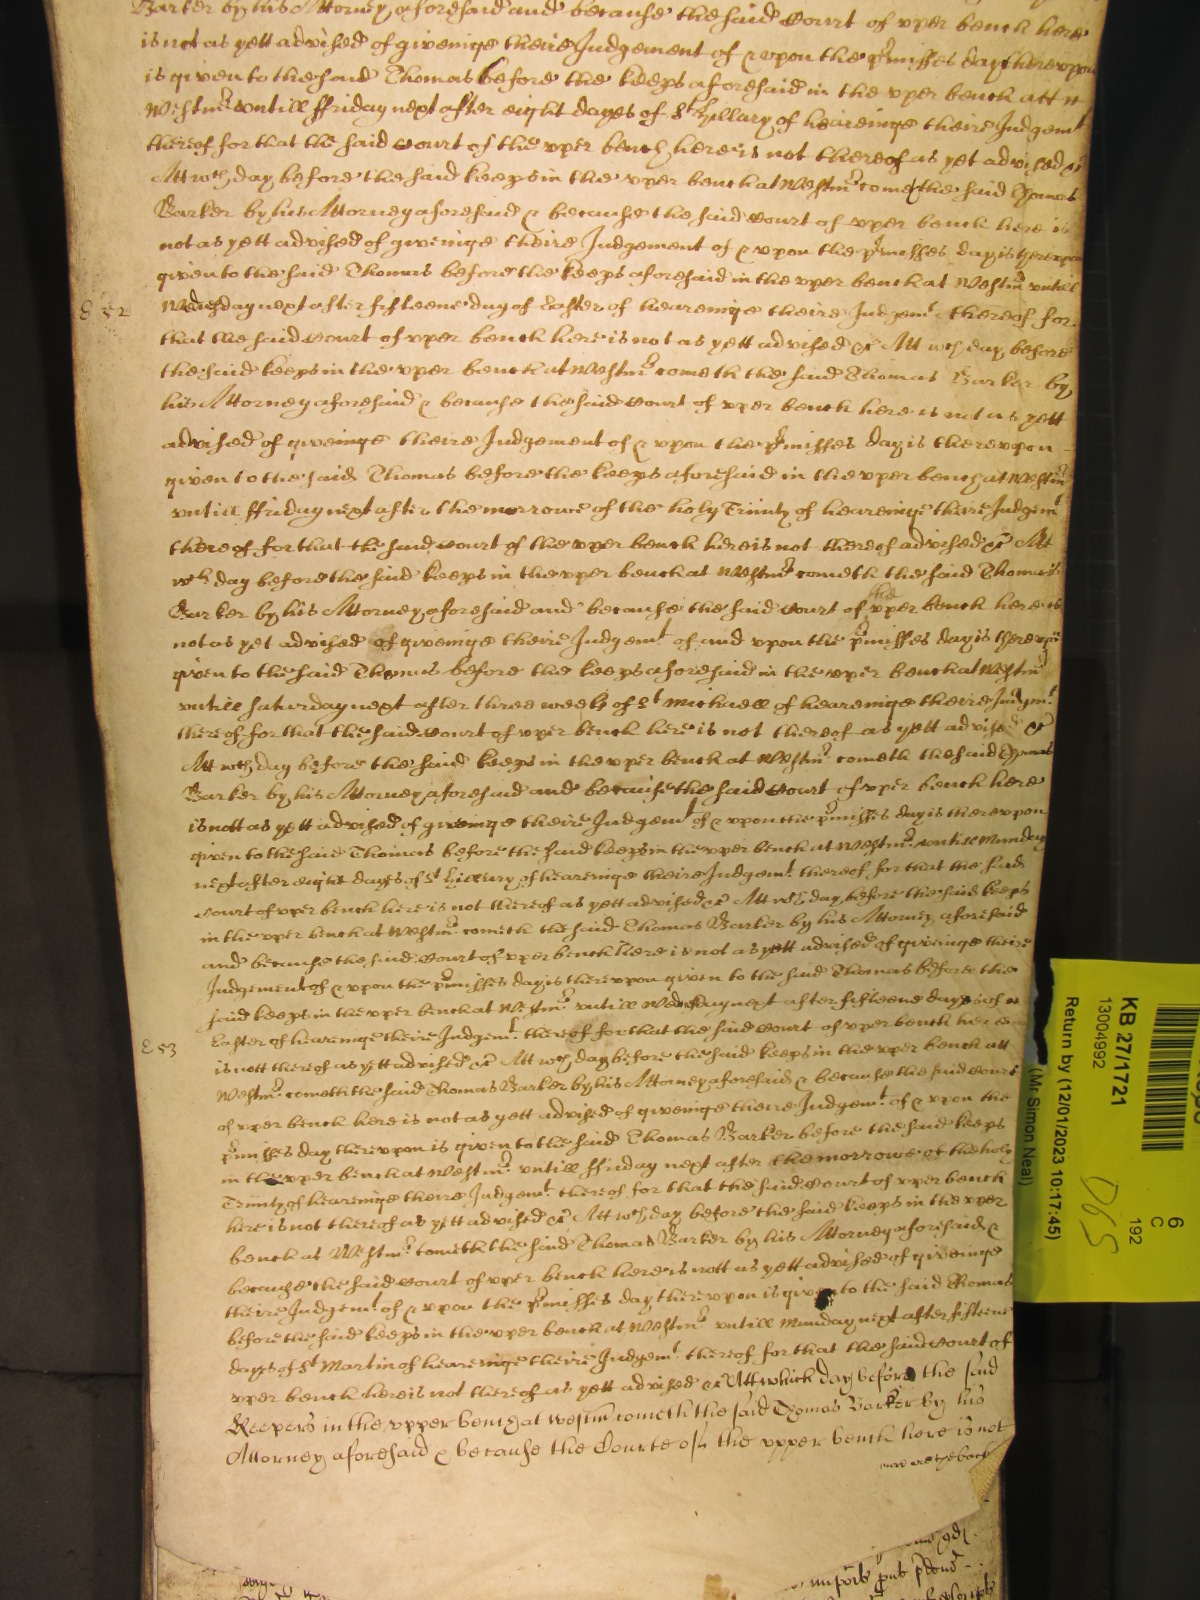 Barker by his Attorney aforesaid and because the said Court of vper bench here
is not as yett advised of giveinge theire Judgement of & vpon the p'misses day therevpon
is given to the said Thomas before the keeps aforesaid in the vper bench att
Westm' vntill ffriday next after eight dayes of St Hillary of heareinge theire Judgemt
thereof for that the said Court of the vper bench here is not thereof as yet advised &c
Att wch day before the said keeps in the vper bench at Westm' cometh the said Thomas
Barker by his Attorney aforesaid & because the said Court of vper bench here is
not as yett advised of giveinge theire Judgement of & vpon the p'misses day is therevpon
given to the said Thomas before the keeps aforesaid in the vper bench at Westm' vntill
E 52 Wednesday next after fifteene day of Easter of heareinge theire Judgemt thereof for
that the said Court of vper bench here is not as yett advised &c Att wch day before
the said keeps in the vper bench at Westm' cometh the said Thomas Barker by
his Attorney aforesaid & because the said Court of vper bench here is not as yett
advised of giveinge theire Judgement of & vpon the p'misses day is therevpon
given to the said Thomas before the keeps aforesaid in the vper bench at Westm'
vntill ffriday next after the morrowe of the holy Trinity of heareinge theire Judgemt
thereof for that the said Court of the vper bench here is not thereof advised &c Att
wch day before the said keeps in the vper bench at Westm' cometh the said Thomas
Barker by his Attorney aforesaid and because the said Court of the vper bench here is
not as yet advised of giveinge theire Judgemt of and vpon the p'misses day is therevpon
given to the said Thomas before the keeps aforesaid in the vper bench at Westm'
vntill Saturday next after three weeks of St Michaell of heareinge theire Judgmt
thereof for that the said Court of vper bench here is not thereof as yett advised &c
Att wch day before the said keeps in the vper bench at Westm' cometh the said Thomas
Barker by his Attorney aforesaid and because the said Court of vper bench here
is nott as yett advised of giveinge theire Judgemt of & vpon the p'misses day is therevpon
given to the said Thomas before the said keeps in the vper bench at Westm' vntill Munday
next after eight dayes of St Hillary of heareinge theire Judgemt thereof for that the said
Court of vper bench here is not thereof as yett advised &c Att wch day before the said keeps
in the vper bench at Westm' cometh the said Thomas Barker by his Attorney aforesaid
and because the said Court of vper bench here is not as yett advised of giveinge theire
Judgement of & vpon the p'misses day is therevpon given to the said Thomas before the
said keeps in the vper bench at Westm' vntill Wednesday next after fifteene dayes of
E 53 Easter of heareinge theire Judgemt thereof for that the said Court of vper bench here
is nott thereof as yett advised &c Att wch day before the said keeps in the vper bench att
Westm' cometh the said Thomas Barker by his Attorney aforesaid & because the said Court
of vper bench here is not as yett advised of giveinge theire Judgemt of & vpon the
p'misses day therevpon is given to the said Thomas Barker before the said keeps
in the vper bench at Westm' vntill ffriday next after the morrowe of the holy
Trinity of heareinge theire Judgemt thereof for that the said Court of vper bench
here is not thereof as yett advised &c Att wch day before the said keeps in the vper
bench at Westm' cometh the said Thomas Barker by his Attorney aforesaid &
because the said Court of vper bench here is nott as yett advised of giveinge
theire Judgemt of & vpon the p'misses day therevpon is given to the said Thomas
before the said keeps in the vper bench at Westm' vntill Munday next after fifteene
dayes of St Martin of heareinge theire Judgemt thereof for that the said Court of
vper bench here is not thereof as yett advised &c Att which day before the said
Keepers in the vpper bench at Westm' cometh the said Thomas Barker by his
Attorney aforesaid & because the Courte of the vpper bench here is not
KB 27/1721
13004992
Return by (12/01/2023 10:17:45)
(Mr Simon Neal)
6
C
192
D65